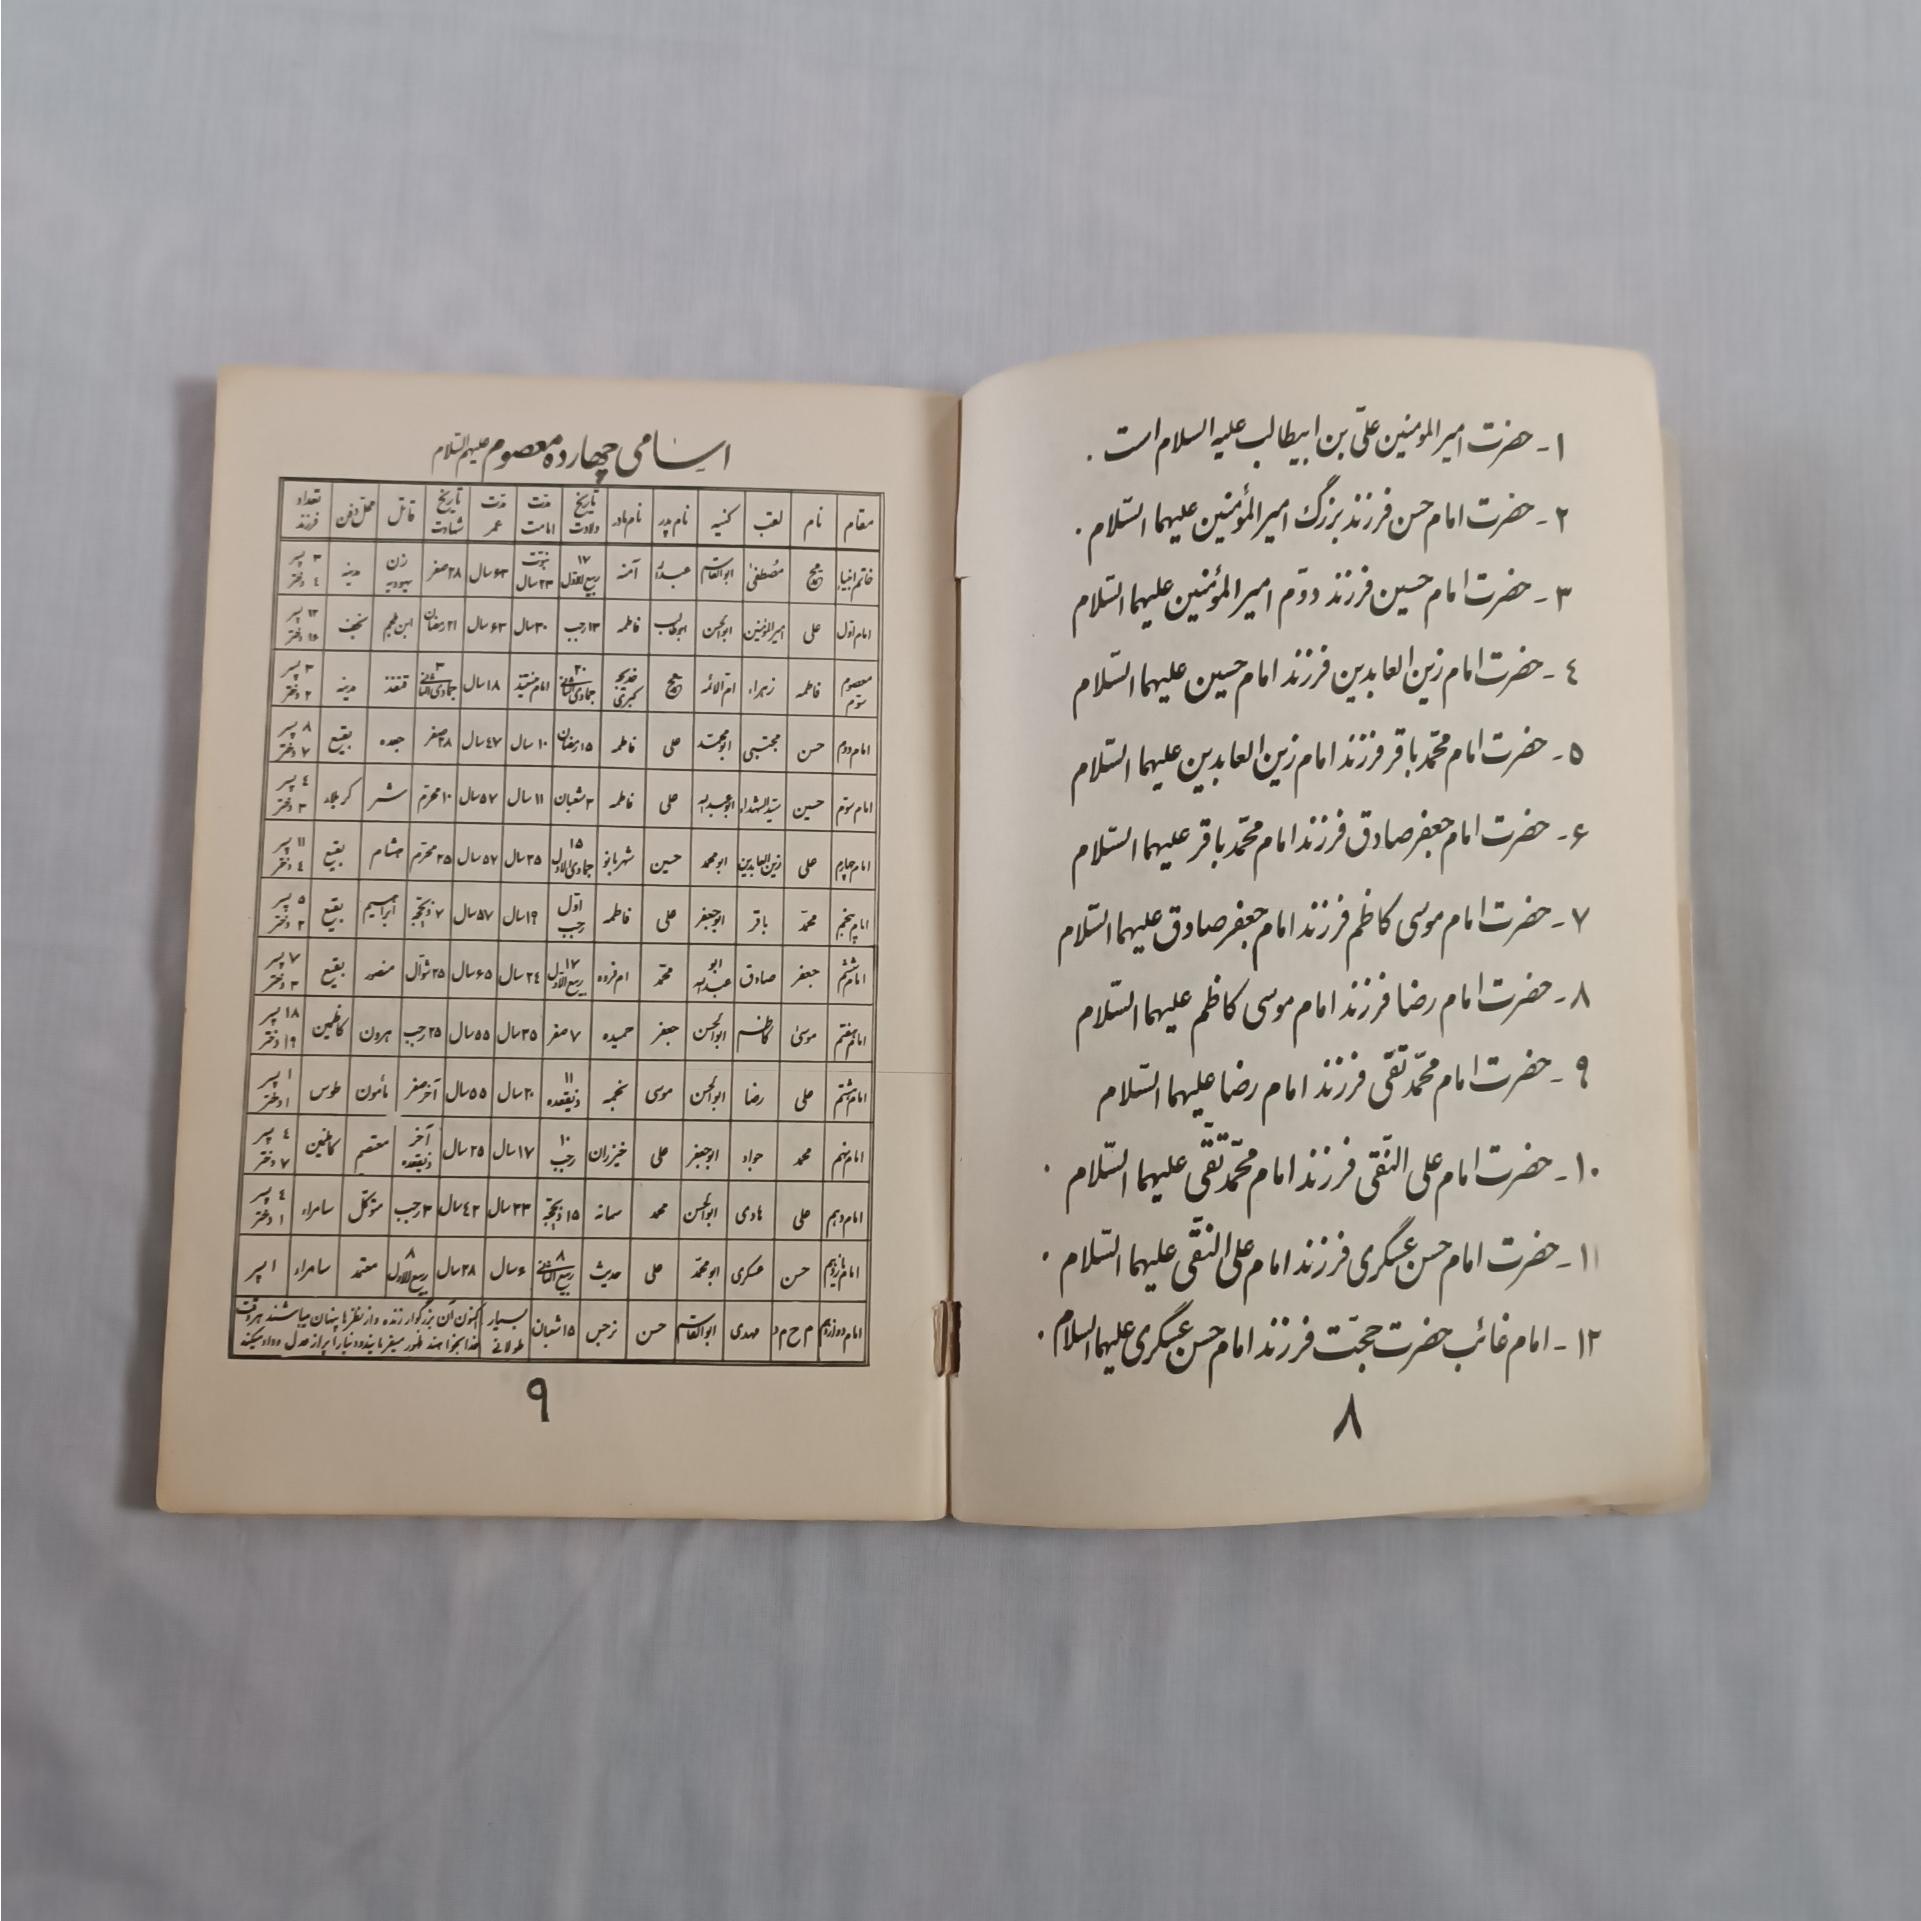 ۱- حضرت امیرالمومنین علیّ بن ابیطالب علیه السلام است .
۲- حضرت امام حسن فرزند بزرگ امیرالمؤمنین علیهما السّلام .
۳- حضرت امام حسین فرزند دوّم امیرالمؤمنین علیهما السّلام
٤- حضرت امام زین العابدین فرزند امام حسین علیهما السّلام
۵- حضرت امام محمّد باقر فرزند امام زین العابدین علیهما السّلام
۶- حضرت امام جعفر صادق فرزند امام محمّد باقر علیهما السّلام
۷- حضرت امام موسی کاظم فرزند امام جعفر صادق علیهما السّلام
۸- حضرت امام رضا فرزند امام موسی کاظم علیهما السّلام
۹- حضرت امام محمّد تقی فرزند امام رضا علیهما السّلام
۱۰- حضرت امام علی النّقی فرزند امام محمّد تقّی علیهما السّلام .
۱۱- حضرت امام حسن عسگری فرزند امام علی النّقی علیهما السّلام .
۱۲- امام غائب حضرت حجّت فرزند امام حسن عسگری علیهما السلام .
۸
اسامی چهارده معصوم علیهم السّلام
مقام نام لقب کنیه نام پدر نام مادر تاریخ ولادت مدت امامت مدت عمر تاریخ شهادت قاتل محل دفن تعداد فرزند
خاتم انبیاء محمد مصطفی ابوالقاسم عبدالله آمنه ۱۷ ربیع الاول نبوت ۲۳ سال ۶۳ سال ۲۸ صفر زن یهودیه مدینه ۳ پسر ٤ دختر
امام اوّل علی امیرالمؤمنین ابوالحسن ابوطالب فاطمه ۱۳ رجب ۳۰ سال ۶۳ سال ۲۱ رمضان ابن ملجم نجف ۱۲ پسر ۱۶ دختر
معصوم سوّم فاطمه زهراء امّ الائمه محمد خدیجه کبری ۲۰ جمادی الثانی امام نیستند ۱۸ سال ۳ جمادی الثانی قنفذ مدینه ۳ پسر ۲ دختر
امام دوم حسن مجتبی ابومحمّد علی فاطمه ۱۵ رمضان ۱۰ سال ٤۷ سال ۲۸ صفر جعده بقیع ۸ پسر ۷ دختر
امام سوّم حسین سیّدالشهداء ابوعبدالله علی فاطمه ۳ شعبان ۱۱ سال ۵۷ سال ۱۰ محرّم شمر کربلاء ٤ پسر ۲ دختر
امام چهارم علی زین العابدین ابومحمد حسین شهربانو ۱۵ جمادی الاول ۳۵ سال ۵۷ سال ۲۵ محرّم هشام بقیع ۱۱ پسر ٤ دختر
امام پنجم محمّد باقر ابوجعفر علی فاطمه اوّل رجب ۱۹ سال ۵۷ سال ۷ ذیحجّه ابراهیم بقیع ۵ پسر ۲ دختر
امام ششم جعفر صادق ابو عبدالله محمّد ام فروه ۱۷ ربیع الاوّل ۳٤ سال ۶۵ سال ۲۵ شوّال منصور بقیع ۷ پسر ۳ دختر
امام هفتم موسی کاظم ابوالحسن جعفر حمیده ۷ صفر ۳۵ سال ۵۵ سال ۲۵ رجب هرون کاظمین ۱۸ پسر ۱۹ دختر
امام هشتم علی رضا ابوالحسن موسی نجمه ۱۱ ذیقعده ۲۰ سال ۵۵ سال آخر صفر مأمون طوس ۱ پسر ۱ دختر
امام نهم محمد جواد ابوجعفر علی خیزران ۱۰ رجب ۱۷ سال ۲۵ سال آخر ذیقعده معتصم کاظمین ٤ پسر ۷ دختر
امام دهم علی هادی ابوالحسن محمد سمانه ۱۵ ذیحجّه ۳۳ سال ٤۲ سال ۳ رجب متوکّل سامراء ٤ پسر ۱ دختر
امام یازدهم حسن عسکری ابومحمّد علی حدیث ۸ ربیع الثانی ۶ سال ۲۸ سال ۸ ربیع الاول معتمد سامراء ۱ پسر
امام دوازدهم م ح م د مهدی ابوالقاسم حسن نرجس ۱۵ شعبان بسیار طولانی اکنون آن بزرگوار زنده و از نظرها پنهان میباشند هروقت خدا بخواهند ظهور میفرمایند و دنیا را پر از عدل و داد میکنند
۹